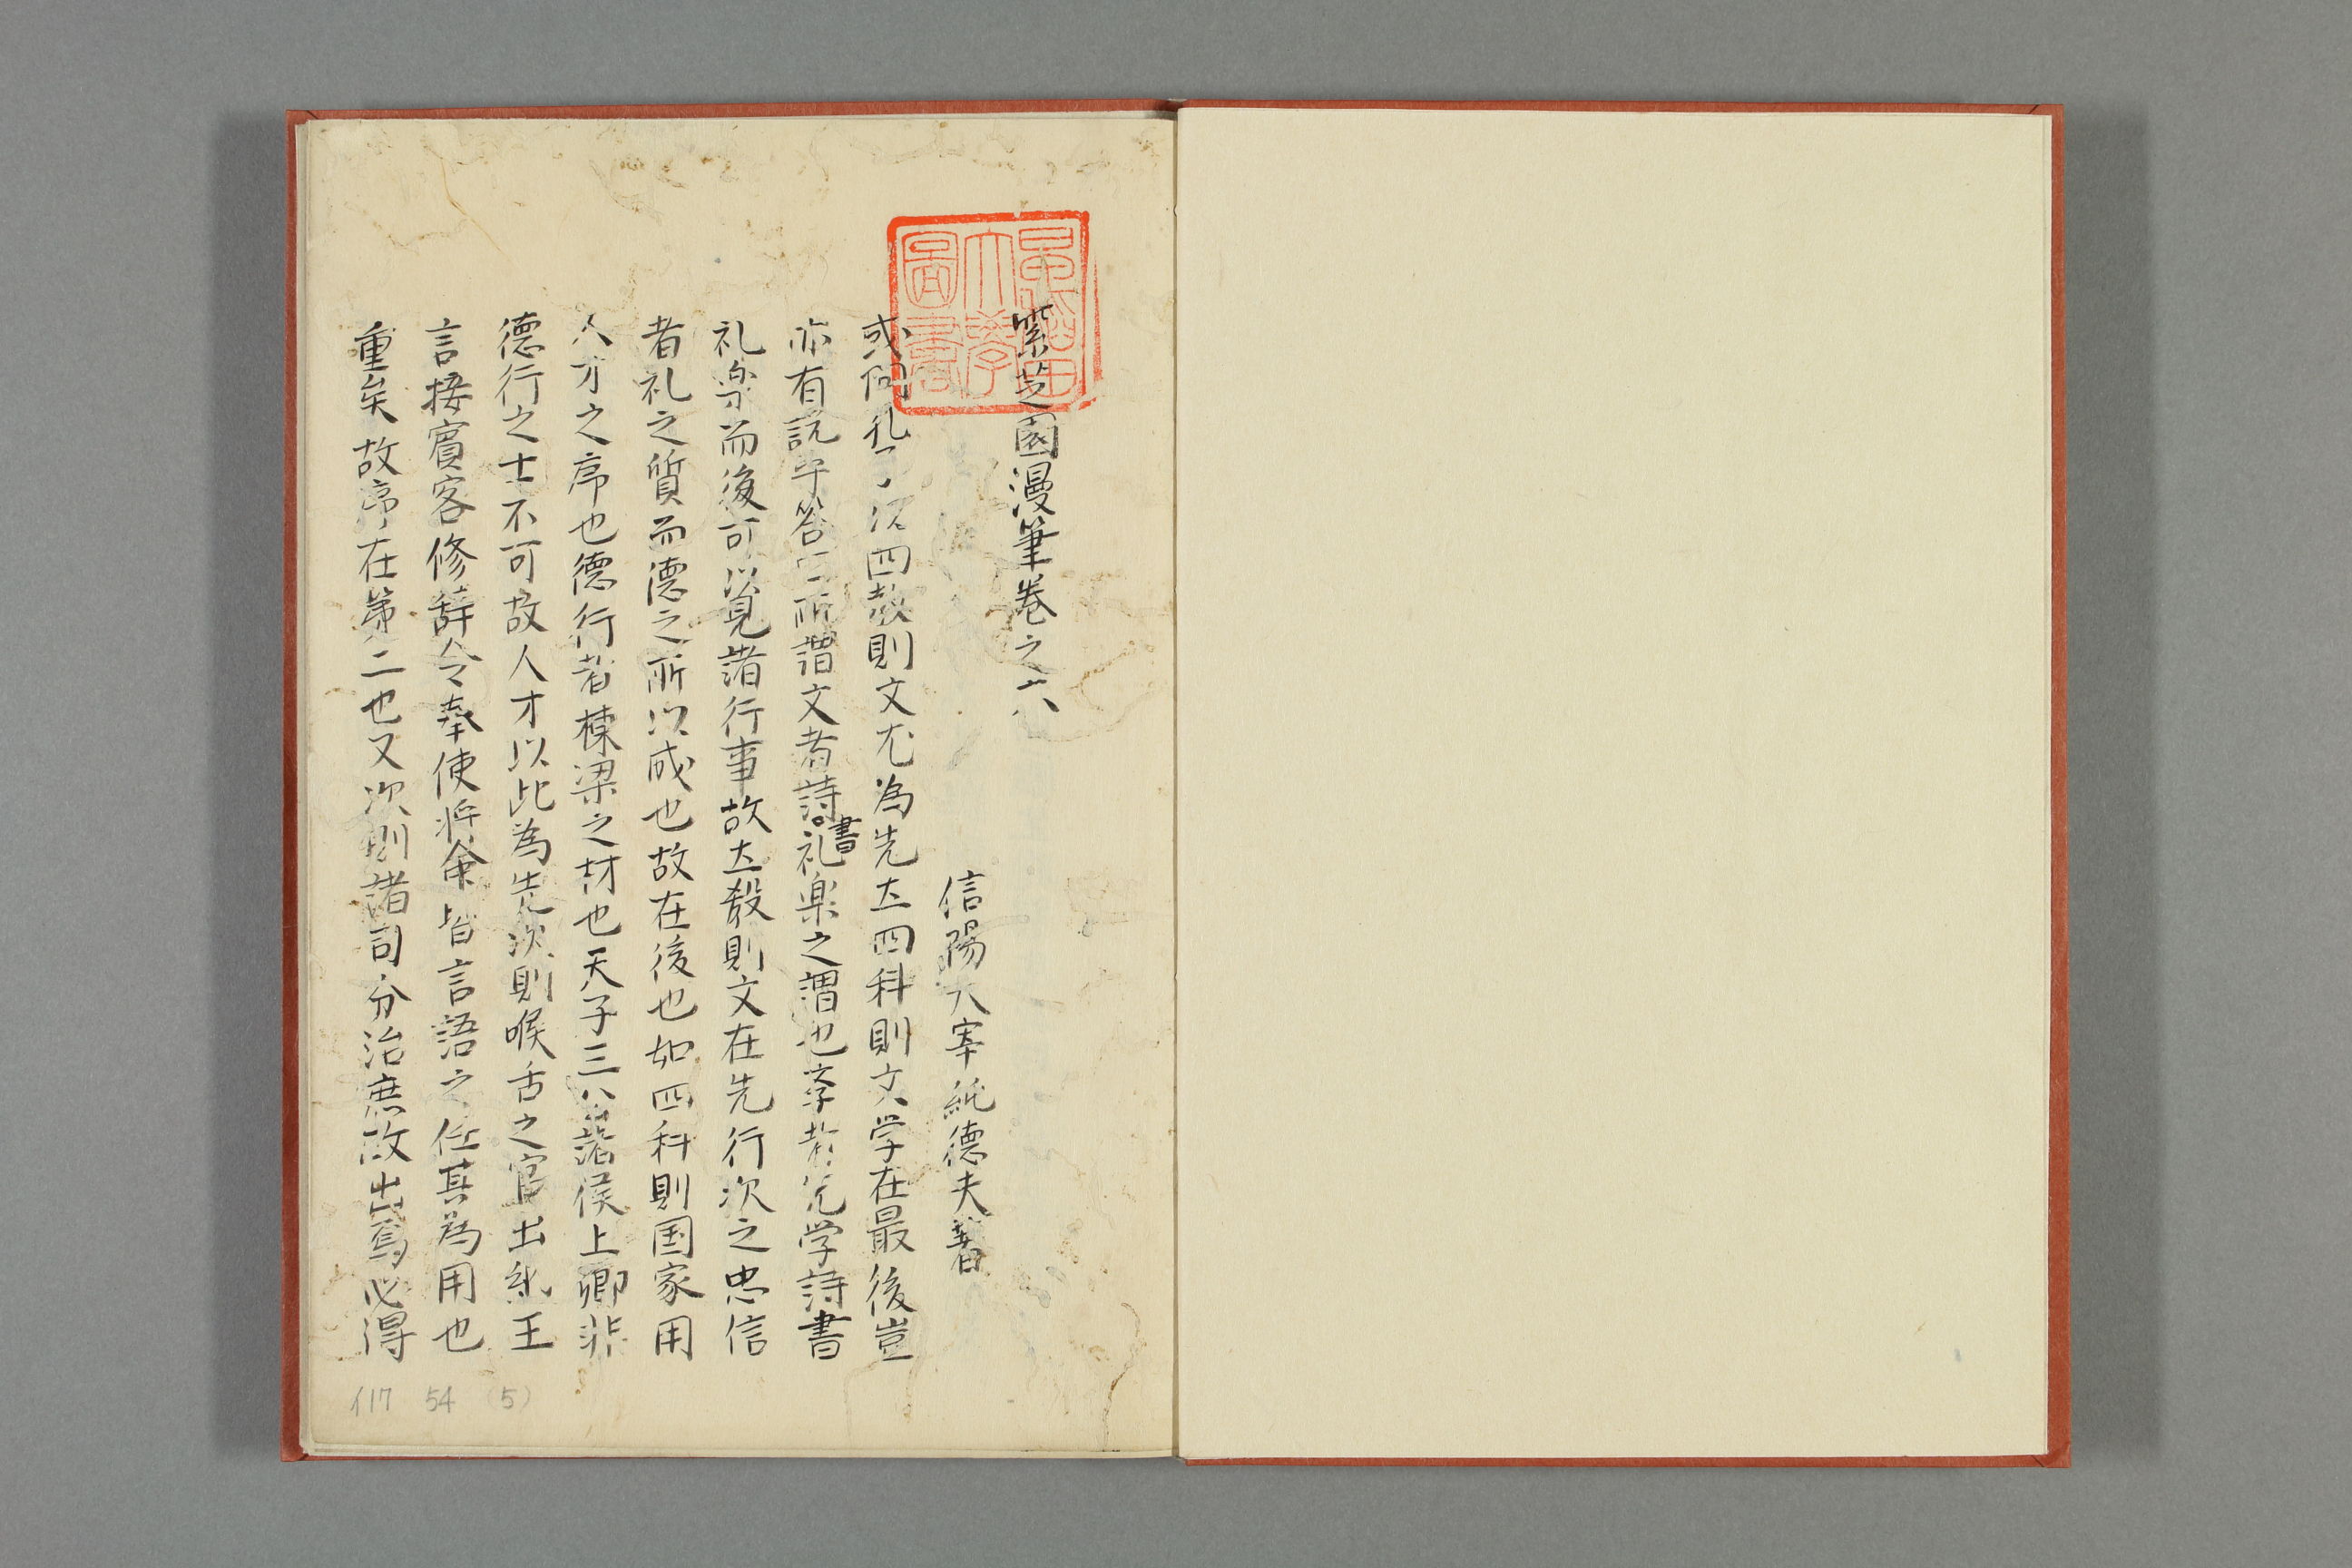 早稲田大學圖書
紫芝園漫筆卷之六
信陽太宰純德夫著
或問孔子以四教則文尤為先在四科則文学在最後豈
亦有説乎答曰所謂文者詩書礼楽之謂也孝者先学詩書
礼楽而後可以見諸行事故在教則文在先行次之忠信
者礼之質而德之所以成也故在後也如四科則国家用
人才之序也德行者棟梁之材也天子三公諸侯上卿非
德行之士不可故人才以此為先次則喉舌之官出納王
言接賓客修辞令奉使将命皆言語之任其為用也
重矣故序在第二也又次則諸司分治庶政出焉必得
イ17 54 (5)